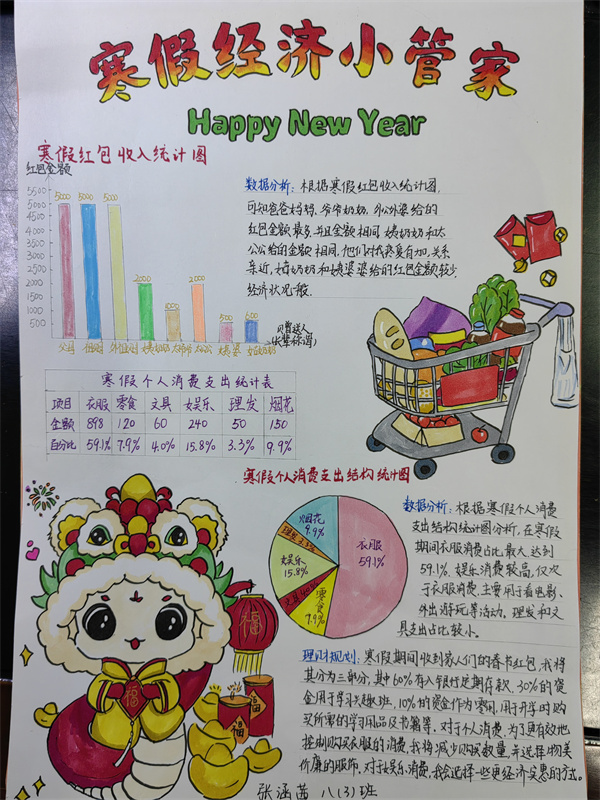 寒假经济小管家
Happy New Year
寒假红包收入统计图
红包金额
5500
5000
4500
4000
3500
3000
2500
2000
1500
1000
500
5000 5000 5000 2000 1000 2000 500 600
父母
馈赠人
寒假个人消费支出统计表
项目 衣服 零食 文具 娱乐 理发 烟花
金额 898 120 60 240 50 150
百分比 59.1% 7.9% 4.0% 15.8% 3.3% 9.9%
数据分析：根据寒假红包收入统计图，
可知爸爸妈妈、爷爷奶奶、外公外婆给的
红包金额最多，并且金额相同。姨奶奶和大
公公给的金额相同，他们对我亲爱有加，关系
亲近，姑奶奶和姨婆婆给的红包金额较少，
经济状况一般。
寒假个人消费支出结构统计图
烟花
9.9%
理发 3.3%
衣服
59.1%
娱乐
15.8%
文具 4.0%
零食
数据分析：根据寒假个人消费
支出结构统计图分析，在寒假
期间衣服消费占比最大，达到
59.1%，娱乐消费较高，仅次
于衣服消费，主要用于看电影、
外出游玩等活动，理发和文
具支出占比较小。
福
福
福
理财规划：寒假期间收到家人们的春节红包，我将
其分为三部分，其中60%存入银行定期存款，30%的资
金用于学习兴趣班，10%的资金作为零用，用于开学时购
买所需的学习用品及书籍等。对于个人消费，为了更有效地
控制购买衣服的消费，我将减少购买数量，并选择物美
价廉的服饰。对于娱乐消费，我会选择一些更经济实惠的方式。
张涵茜 八(3)班